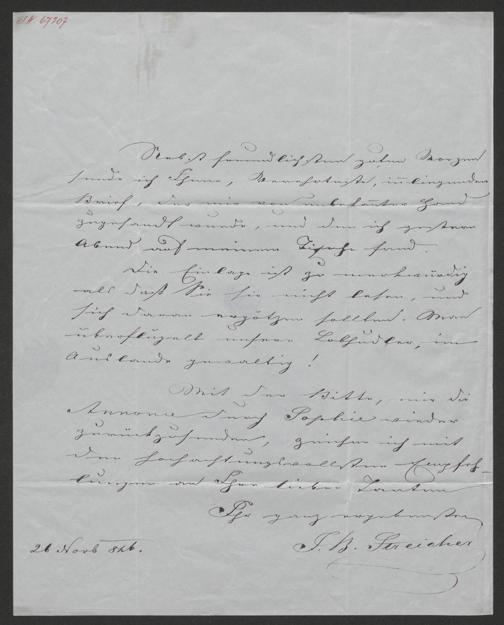 I.N. 67207
Nebst freundlichstem guten Morgen
sende ich Ihnen, Verehrteste, inliegenden
Brief, der mir von unbekannter Hand
zugesandt wurde, und den ich gestern
Abend auf meinem Tische fand.
Die Einlage ist zu merkwürdig
als daß Sie sie nicht lesen, und
sich daran ergötzen sollten. Man
überflügelt unsere Lobhudler, im
Auslande gewaltig!
Mit der Bitte, mir die
Annonce durch Sophie wieder
zurückzusenden, zeichne ich mit
den hochachtungsvollsten Empfeh-
lungen an Ihre liebe Tanten
Ihr ganz ergebenster
J. B. Streicher
26 Novb 846.